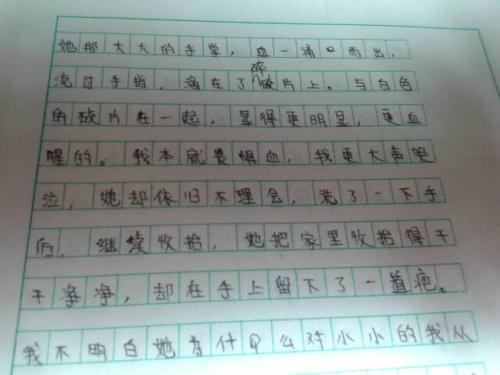 她那大大的手掌，血一涌口而出，
流过手指，滴在了碎片上。与白色
的碎片在一起，显得更明显，更血
腥的。我本就畏惧血，我更大声哭
泣，她却依旧不理会，洗了一下手
后，继续收拾，她把家里收拾得干
干净净，却在手上留下了一道疤。
我不明白她为什么对小小的我从